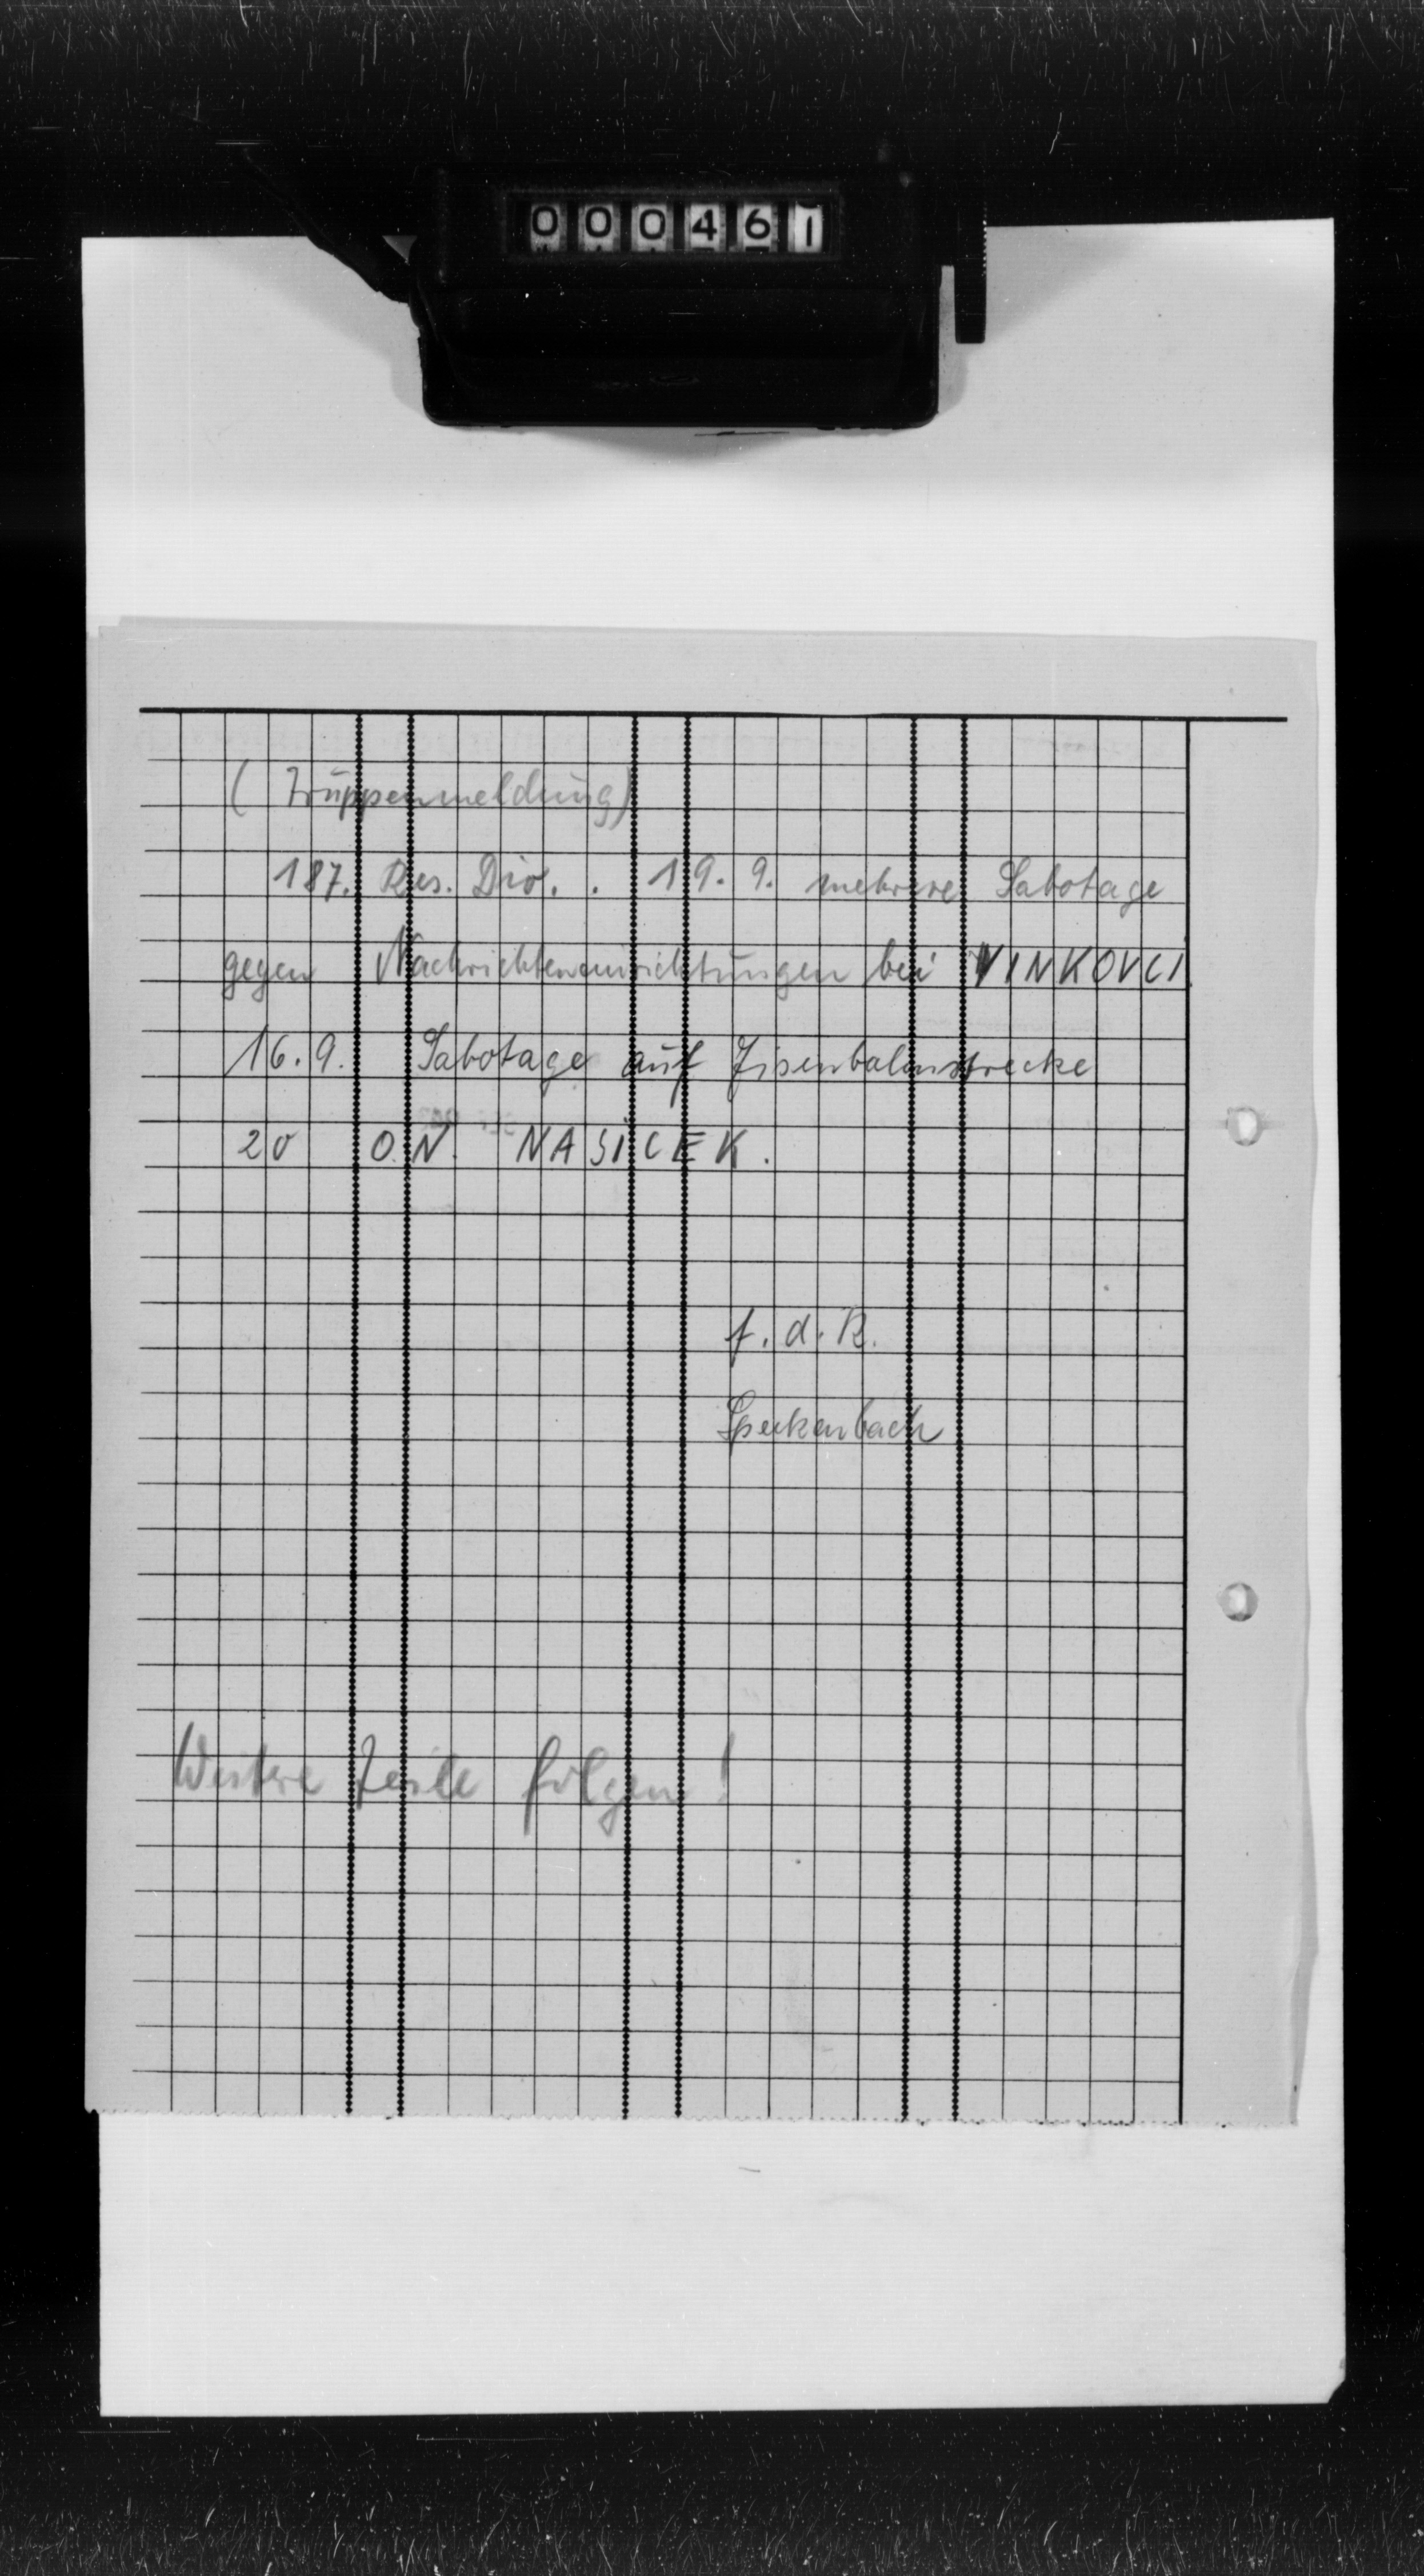 000461
(Truppenmeldung)
187. Res. Div. . 19. 9. mehrere Sabotage
gegen Nachrichteneinrichtungen bei VINKOVCI
16. 9. Sabotage auf Eisenbahnstrecke
20 O.N. NASICEK.
f. d. R.
Speckenbach
Weitere Teile folgen!